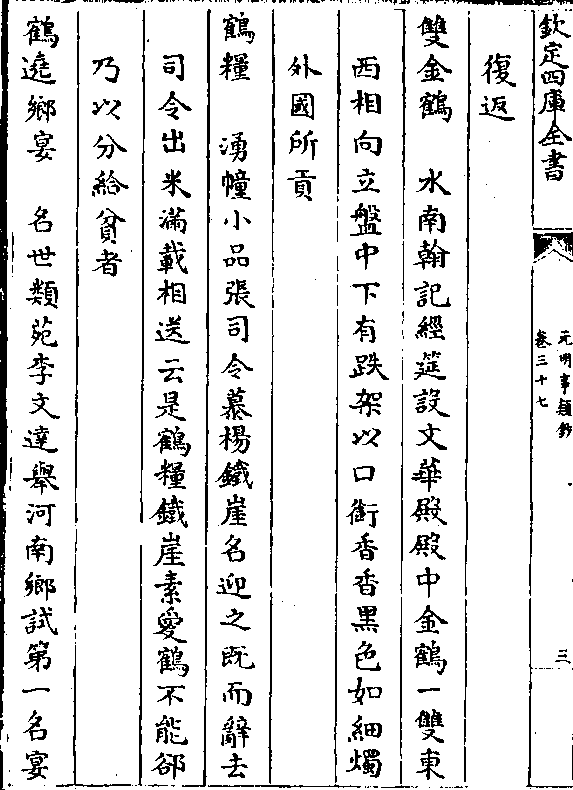 欽定四庫全書
元明事類鈔
卷三十七
三
復返
雙金鶴　水南翰記經筵設文華殿殿中金鶴一雙東
西相向立盤中下有趺架以口銜香香黑色如細燭
外國所貢
鶴糧　湧幢小品張司令慕楊鐵崖名迎之既而辭去
司令出米滿載相送云是鶴糧鐵崖素愛鶴不能郤
乃以分給貧者
鶴遶鄉宴　名世類苑李文達舉河南鄉試第一名宴